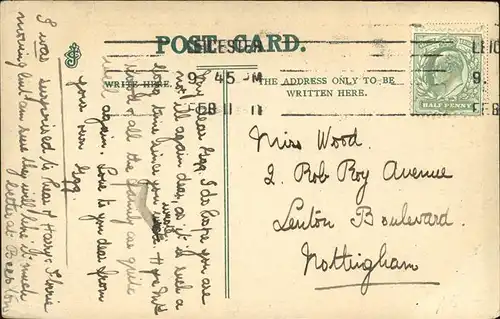 POST CARD.
WRITE HERE.
THE ADDRESS ONLY TO BE
WRITTEN HERE.
LEICESTER
9 45 M
FEB 11 11
LEIC
9.
FEB
HALF PENNY
Miss Wood.
2. Rob Roy Avenue
Lenton Boulevard.
Nottingham
My dear Egg. I do hope you are
not ill again dear, as it is such a
long time since you wrote. Hope Mr
Wood & all the family are quite
well again. Love to you dear from
your own Egg.
I was surprised to hear of Harry & Florrie
moving but am sure they will like it much
better at Beeston